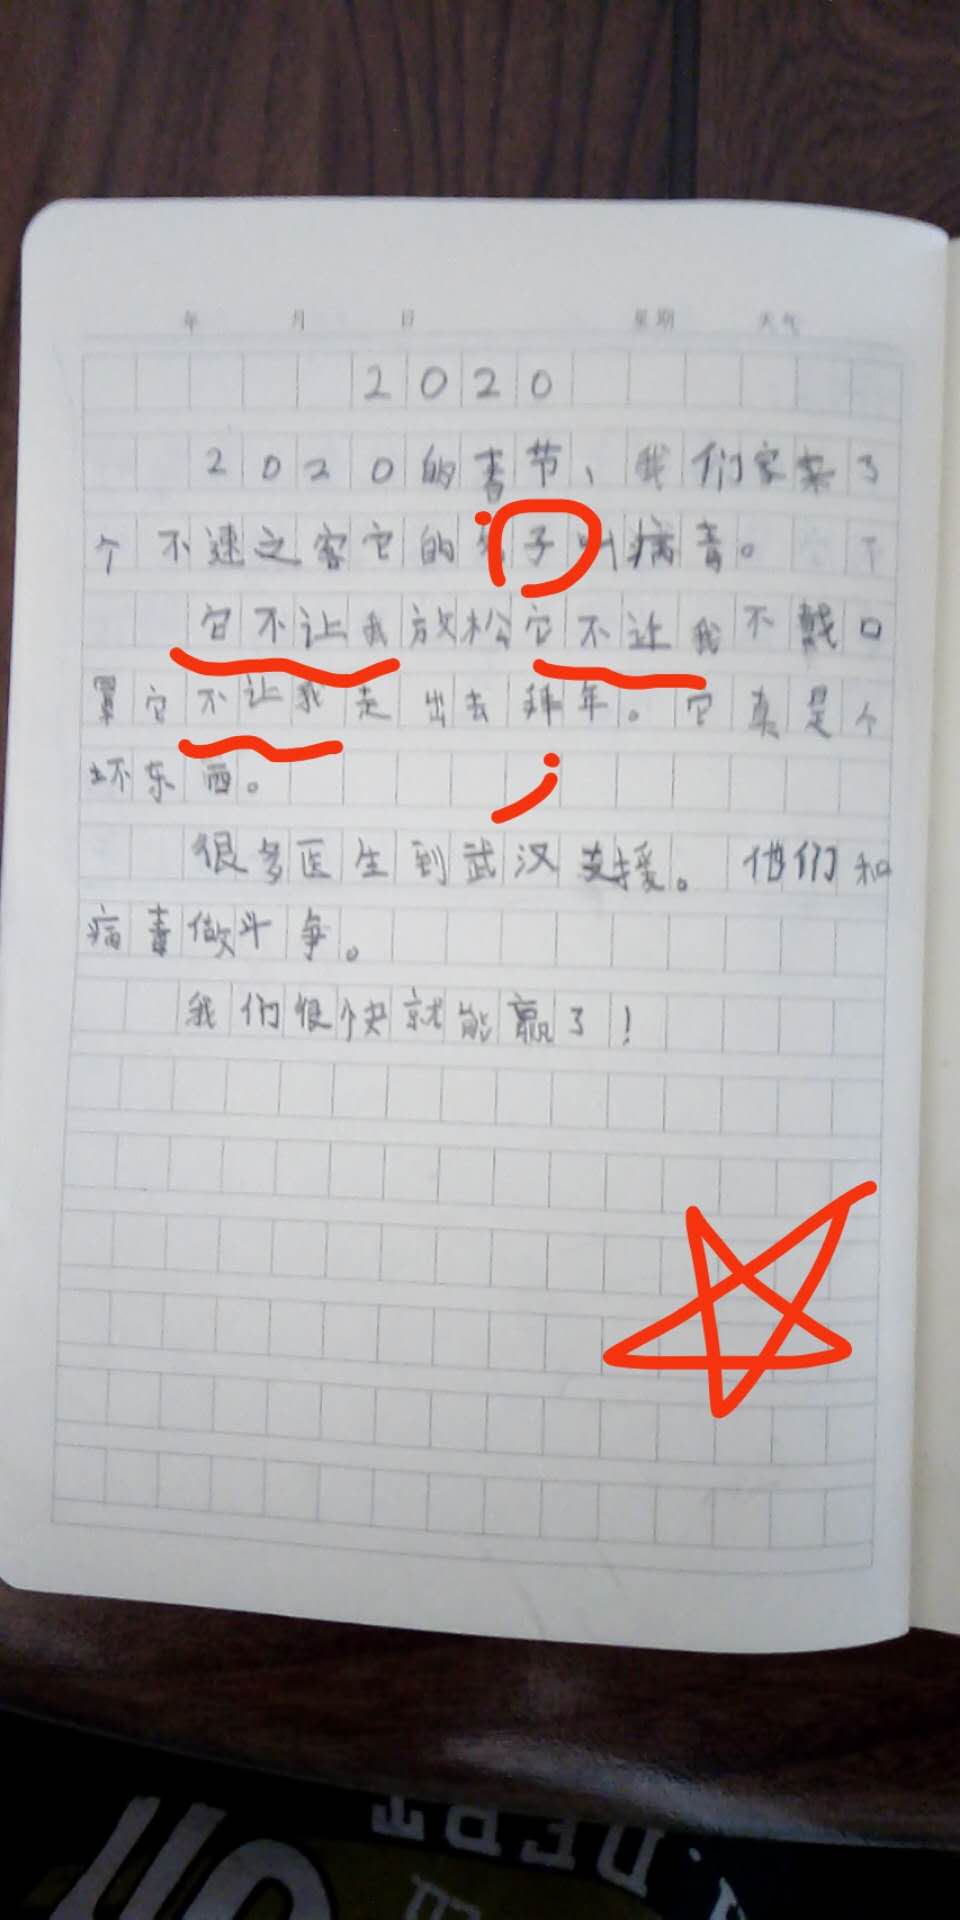 年 月 日 星期 天气
2020
2020的春节，我们家来了
个不速之客它的名子叫病毒。
它不让我放松它不让我不戴口
罩它不让我走出去拜年。它真是个
坏东西。
很多医生到武汉支援。他们和
病毒做斗争。
我们很快就能赢了！